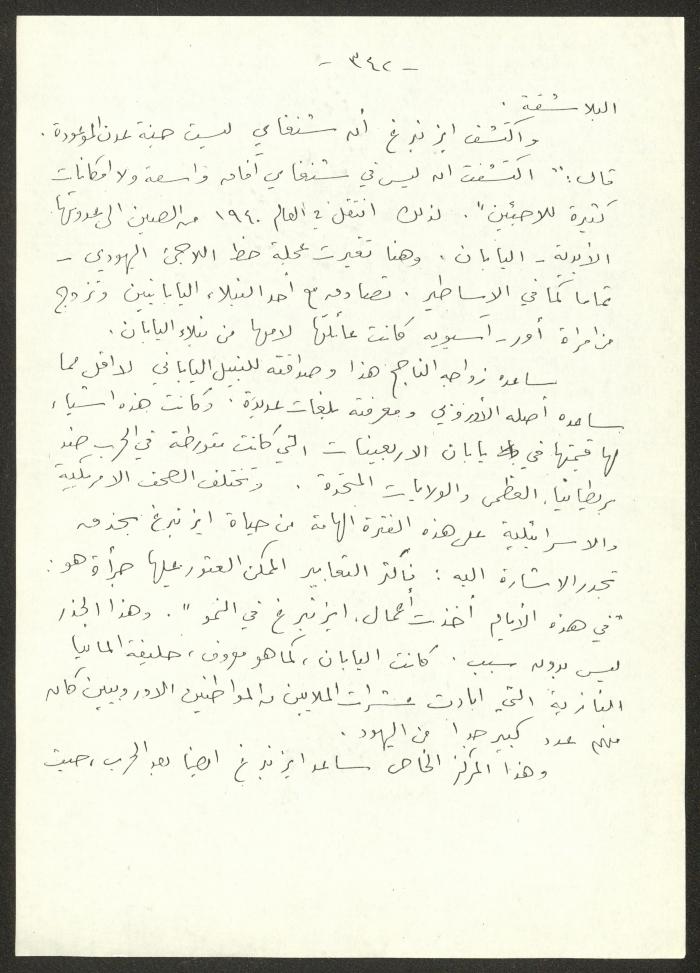 - ٣٤٢ -
البلاشفة .
واكتشف ايزنبرغ أن شنغهاي ليست جنة عدن الموعودة .
قال : " اكتشفت انه ليس في شنغهاي آفاق واسعة ولا امكانات
كثيرة للاجئين " . لذلك انتقل في العام ١٩٤٠ من الصين الى عدوتها
الأبدية - اليابان . وهنا تغيرت عجلة حظ اللاجئ اليهودي -
تماما كما في الاساطير . تصادق مع أحد النبلاء اليابانيين وتزوج
من امرأة أور - آسيوية كانت عائلتها لامها من نبلاء اليابان .
ساعده زواجه الناجح هذا وصداقته للنبيل الياباني لا اقل مما
ساعده أصله الأوروبي ومعرفته بلغات عديدة . وكانت هذه اشياء
لها قيمتها في يابان الاربعينات التي كانت متورطة في الحرب ضد
بريطانيا العظمى والولايات المتحدة . وتختلف الصحف الامريكية
والاسرائيلية على هذه الفترة الهامة من حياة ايزنبرغ بحذق
تجدر الاشارة اليه : فأكثر التعابير الممكن العثور عليها جرأة هو :
" في هذه الأيام أخذت أعمال ايزنبرغ في النمو " . وهذا الحذر
ليس بدون سبب . كانت اليابان ، كما هو معروف ، حليفة المانيا
النازية التي ابادت عشرات الملايين من المواطنين الاوروبيين كان
منهم عدد كبير جدا من اليهود .
وهذا المركز الخاص ساعد ايزنبرغ ايضا بعد الحرب ، حيث